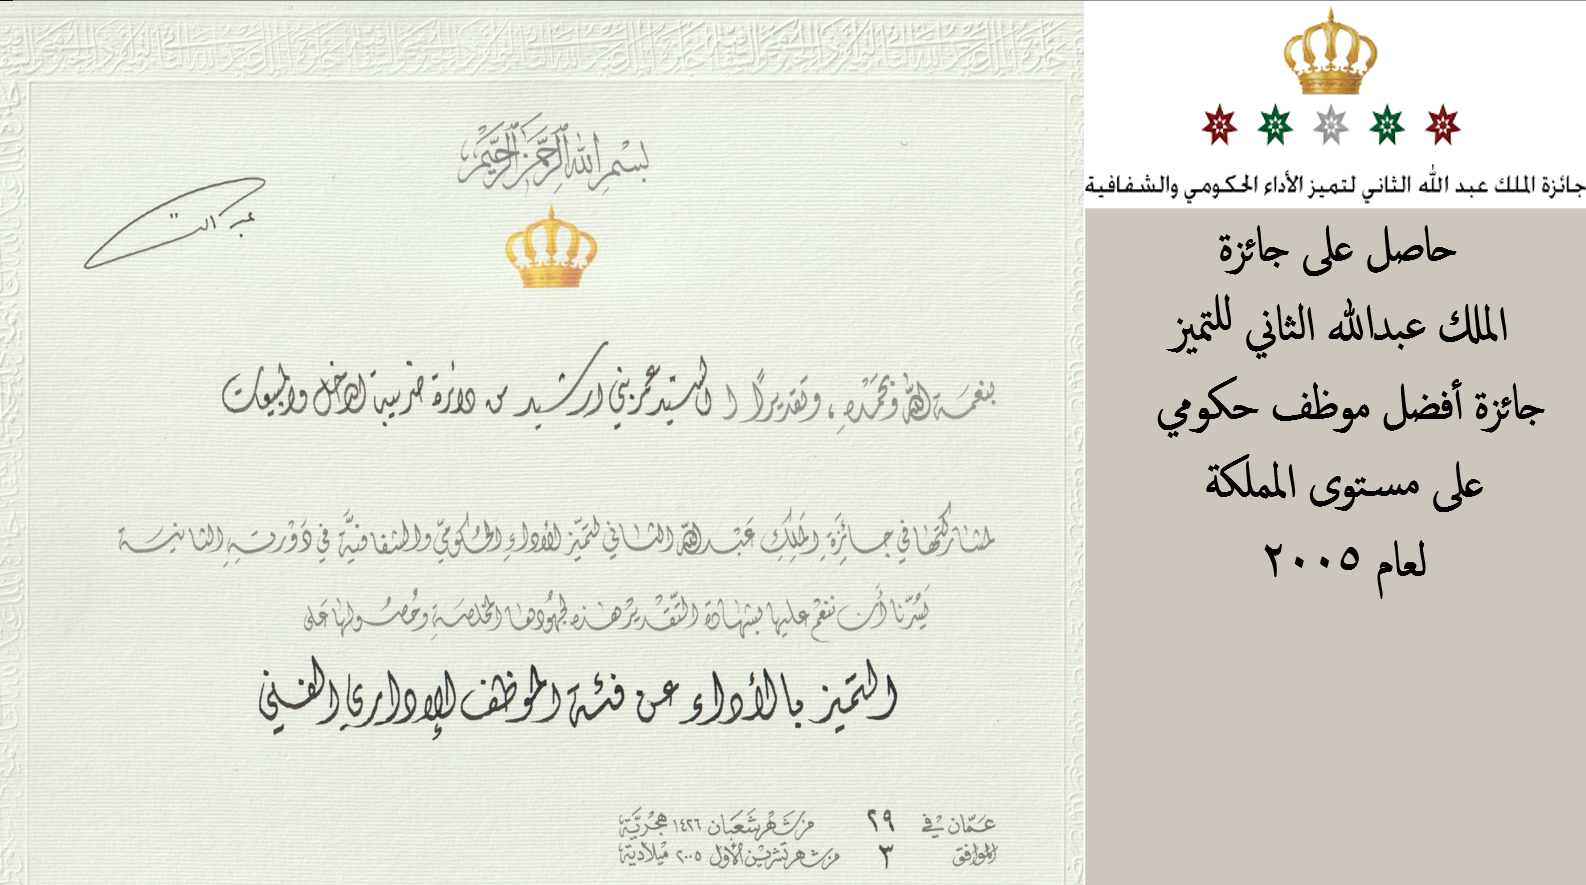 بسم الله الرحمن الرحيم
عبد الله
بنعمة الله وبحمده، وتقديرًا لـ السيد عمر بني ارشيد من دائرة ضريبة الدخل والمبيعات
لمشاركتها في جائزة الملك عبد الله الثاني لتميز الأداء الحكومي والشفافية في دورته الثانية
يسرنا أن ننعم عليها بشهادة التقدير هذه لجهودها المخلصة وحصولها على
التميز بالأداء عن فئة الموظف الإداري الفني
عمّان في ٢٩ من شهر شعبان ١٤٢٦ هجرية
الموافق ٣ من شهر تشرين الأول ٢٠٠٥ ميلادية
جائزة الملك عبد الله الثاني لتميز الأداء الحكومي والشفافية
حاصل على جائزة
الملك عبدالله الثاني للتميز
جائزة أفضل موظف حكومي
على مستوى المملكة
لعام ٢٠٠٥